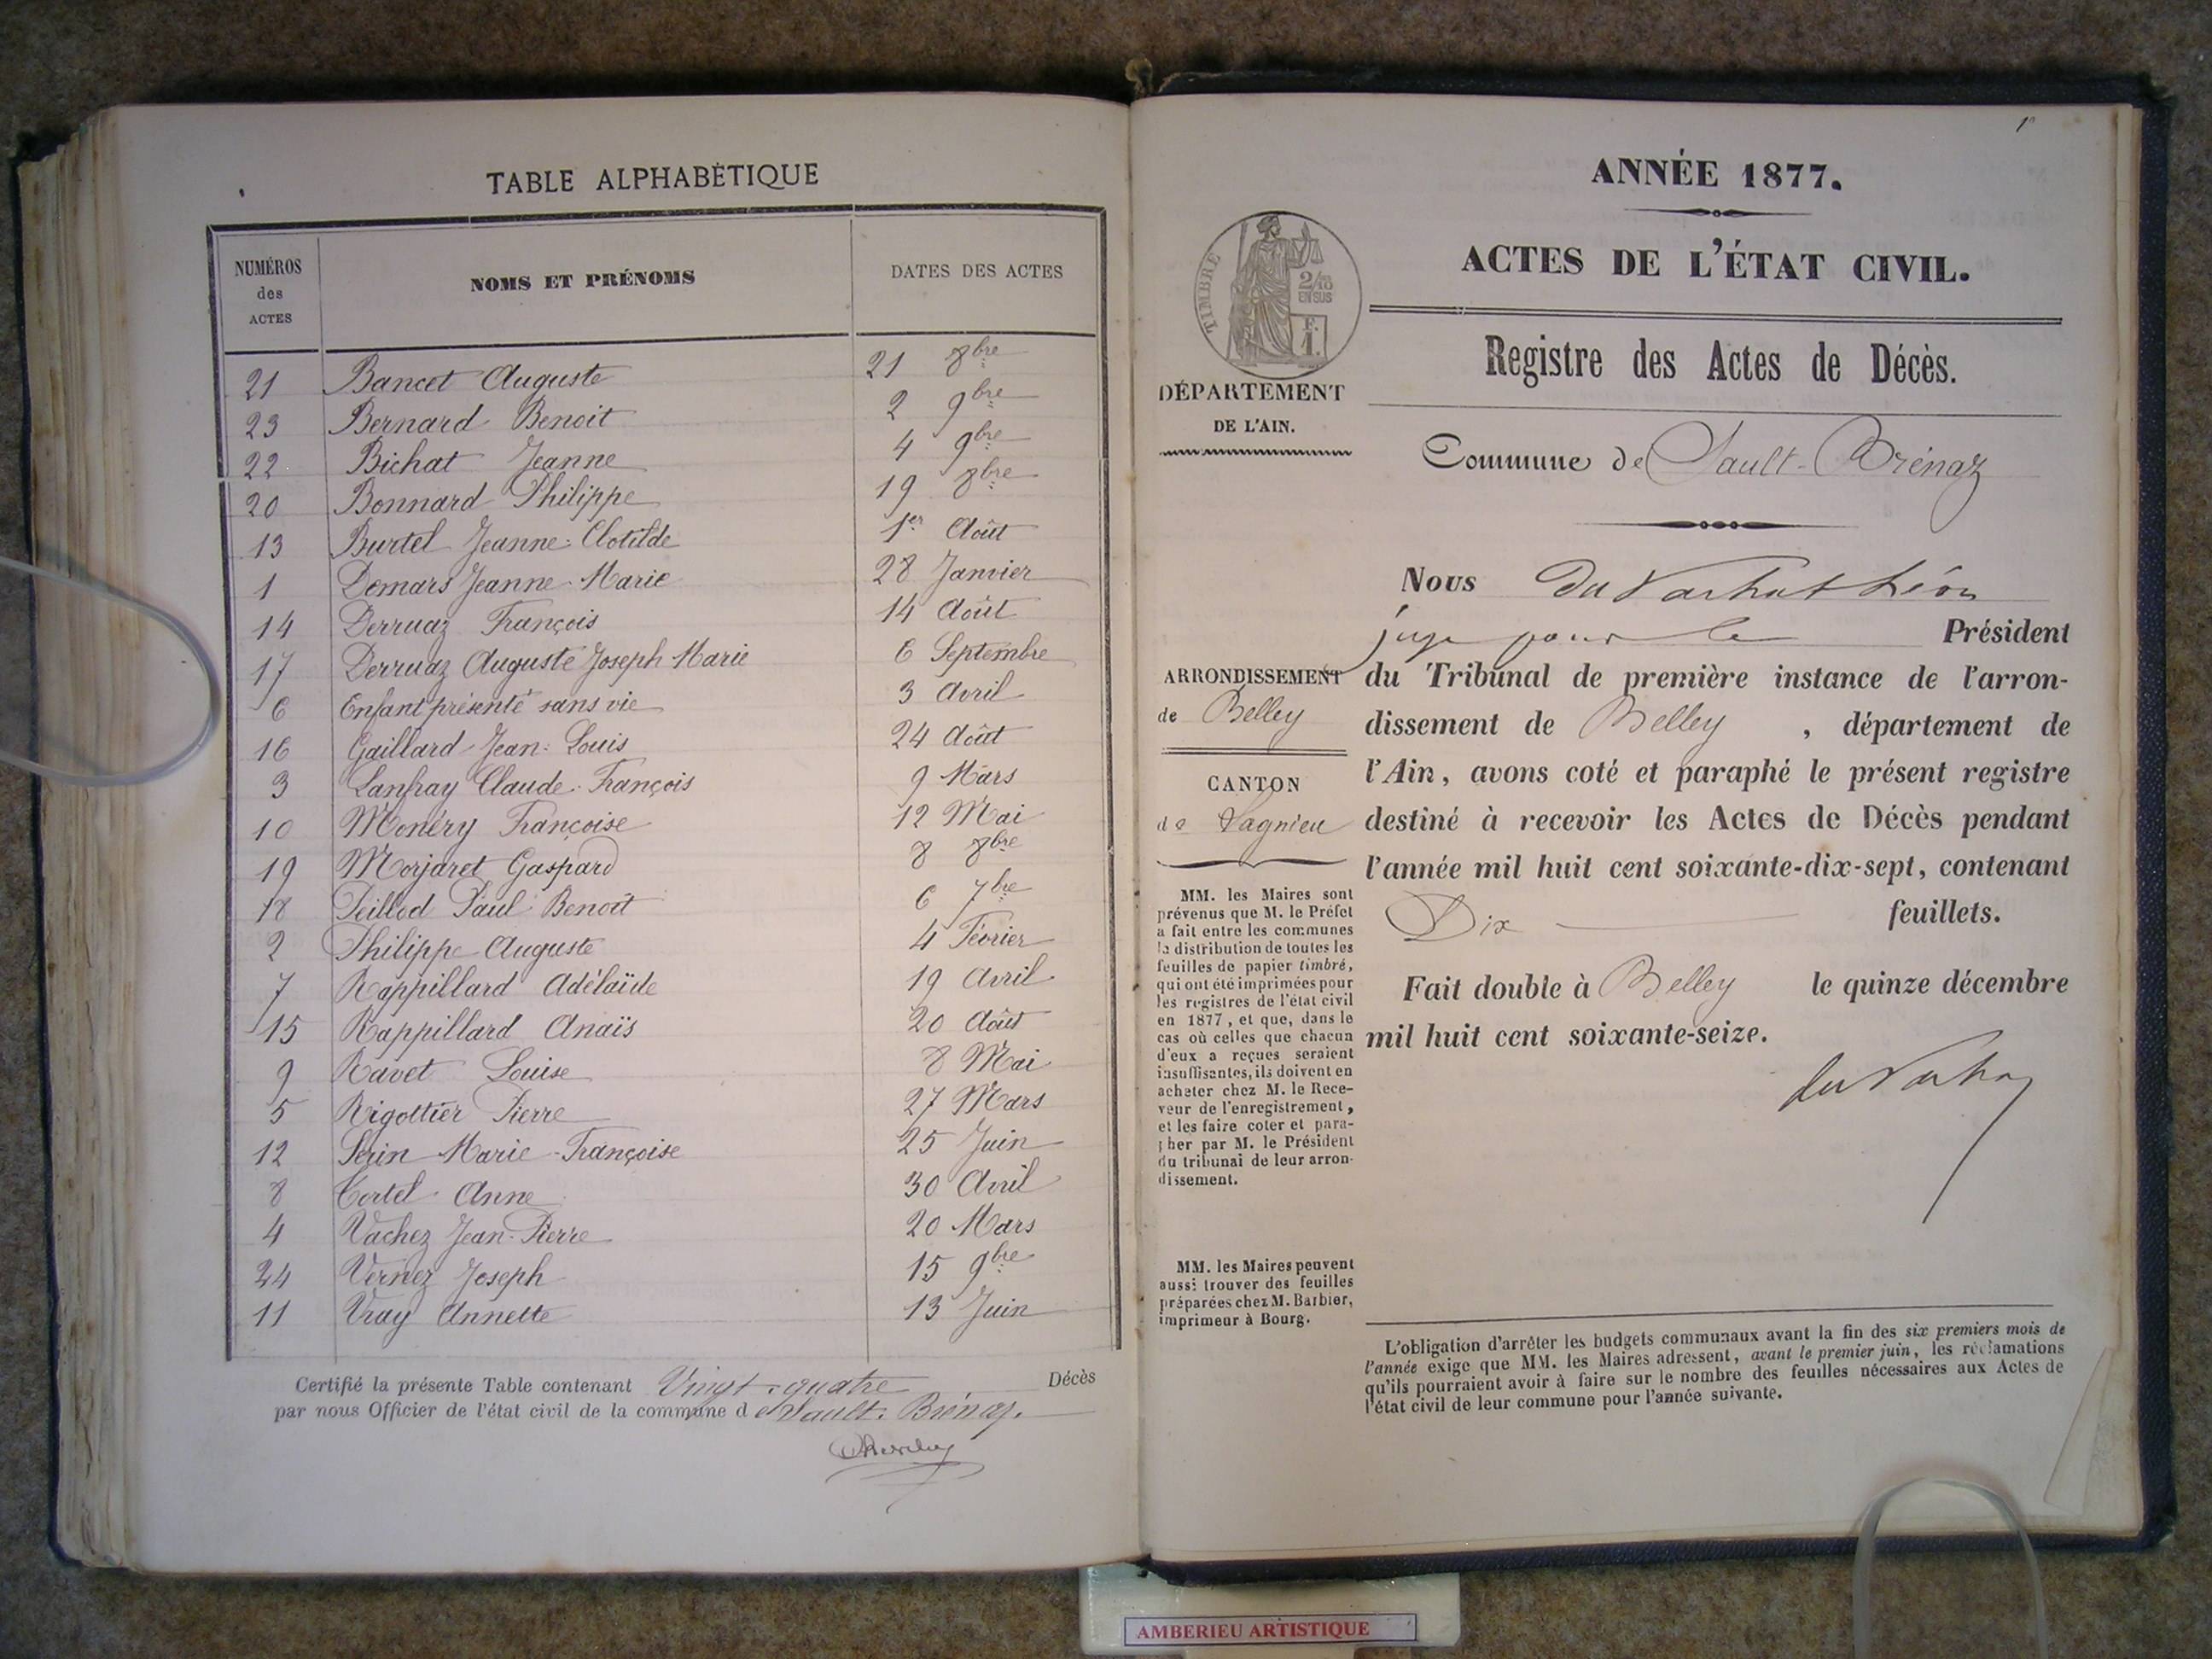 TABLE ALPHABÉTIQUE
NUMÉROS des ACTES NOMS ET PRÉNOMS DATES DES ACTES
21 Bancet Auguste 21 8bre
23 Bernard Benoit 2 9bre
22 Bichat Jeanne 4 9bre
20 Bonnard Philippe 19 8bre
13 Burtel Jeanne-Clotilde 1er Août
1 Demars Jeanne-Marie 28 Janvier
14 Derruaz François 14 Août
17 Derruaz Auguste Joseph Marie 6 Septembre
6 Enfant présenté sans vie 3 Avril
16 Gaillard Jean-Louis 24 Août
3 Lanfray Claude-François 9 Mars
10 Monéry Françoise 12 Mai
19 Morjaret Gaspard 8 8bre
18 Peillod Paul Benoit 6 7bre
2 Philippe Auguste 4 Février
7 Rappillard Adélaïde 19 Avril
15 Rappillard Anaïs 20 Août
9 Ravet Louise 8 Mai
5 Rigottier Pierre 27 Mars
12 Serin Marie-Françoise 25 Juin
8 Tortel Anne 30 Avril
4 Vachez Jean-Pierre 20 Mars
24 Vernez Joseph 15 9bre
11 Vray Annette 13 Juin
Certifié la présente Table contenant Vingt-quatre Décès
par nous Officier de l'état civil de la commune de Sault-Brénaz.
1r
ANNÉE 1877.
ACTES DE L'ÉTAT CIVIL.
TIMBRE
2/10
EN SUS
F.
1.
Registre des Actes de Décès.
DÉPARTEMENT
DE L'AIN.
Commune de Sault-Brénaz
Nous Léon
juge pour le Président
du Tribunal de première instance de l'arron-
dissement de Belley, département de
l'Ain, avons coté et paraphé le présent registre
destiné à recevoir les Actes de Décès pendant
l'année mil huit cent soixante-dix-sept, contenant
Dix feuillets.
Fait double à Belley le quinze décembre
mil huit cent soixante-seize.
ARRONDISSEMENT
de Belley
CANTON
de Lagnieu
MM. les Maires sont
prévenus que M. le Préfet
a fait entre les communes
la distribution de toutes les
feuilles de papier timbré,
qui ont été imprimées pour
les registres de l'état civil
en 1877, et que, dans le
cas où celles que chacun
d'eux a reçues seraient
insuffisantes, ils doivent en
acheter chez M. le Rece-
veur de l'enregistrement,
et les faire coter et para-
pher par M. le Président
du tribunal de leur arron-
dissement.
MM. les Maires peuvent
aussi trouver des feuilles
préparées chez M. Barbier,
imprimeur à Bourg.
L'obligation d'arrêter les budgets communaux avant la fin des six premiers mois de
l'année exige que MM. les Maires adressent, avant le premier juin, les réclamations
qu'ils pourraient avoir à faire sur le nombre des feuilles nécessaires aux Actes de
l'état civil de leur commune pour l'année suivante.
AMBERIEU ARTISTIQUE